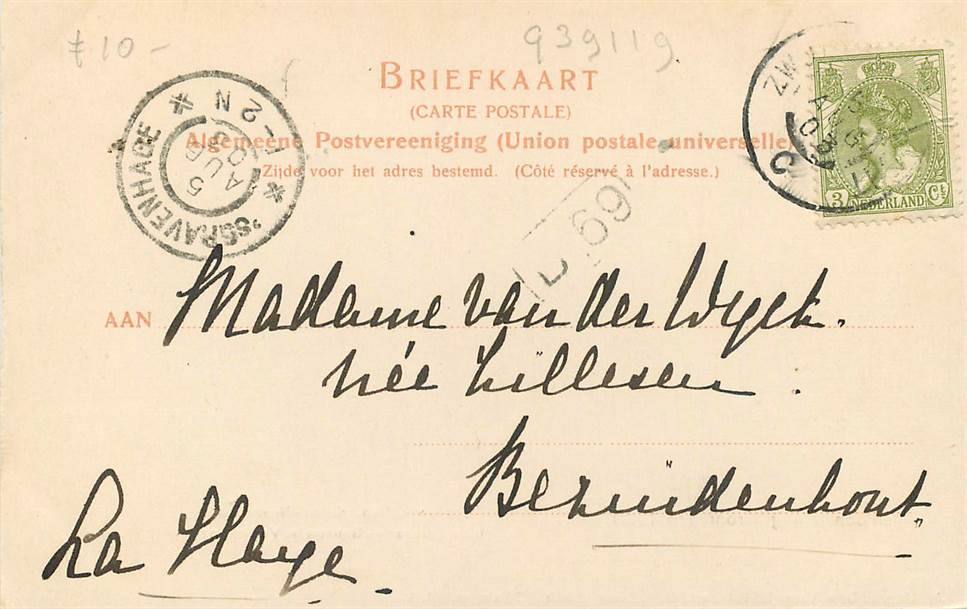 £10-
939119
BRIEFKAART
(CARTE POSTALE)
Algemeene Postvereeniging (Union postale universelle)
(Zijde voor het adres bestemd. (Côté réservé à l'adresse.)
'SGRAVENHAGE
5 AUG
1-2 N
3 NEDERLAND Ct
69
AAN Madame van der Wyck.
née Lillesen.
Bezuidenhout
La Haye.